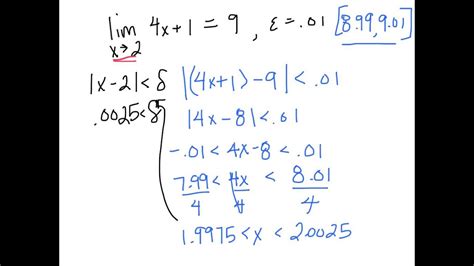 lim 4x+1 = 9 , ε = .01 [8.99, 9.01]
x→2
|x-2|<δ |(4x+1)-9| < .01
.0025<δ |4x-8| < .01
-.01 < 4x-8 < .01
7.99 < 4x < 8.01
4 4 4
1.9975 < x < 2.0025